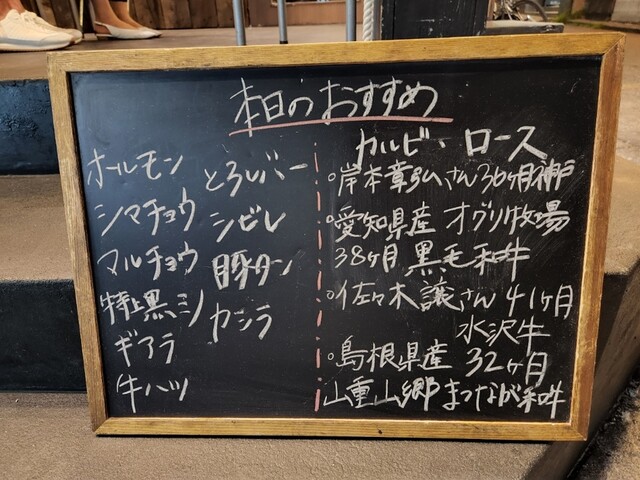 本日のおすすめ
ホールモン
シマチョウ
マルチョウ
特上黒ミノ
ギアラ
牛ハツ
とろレバー
シビレ
豚タン
カシラ
カルビ・ロース
○岸本章弘さん36ヶ月神戸
○愛知県産 オグリ牧場
38ヶ月 黒毛和牛
○佐々木譲さん 41ヶ月
水沢牛
○島根県産 32ヶ月
山重山郷まつなが和牛